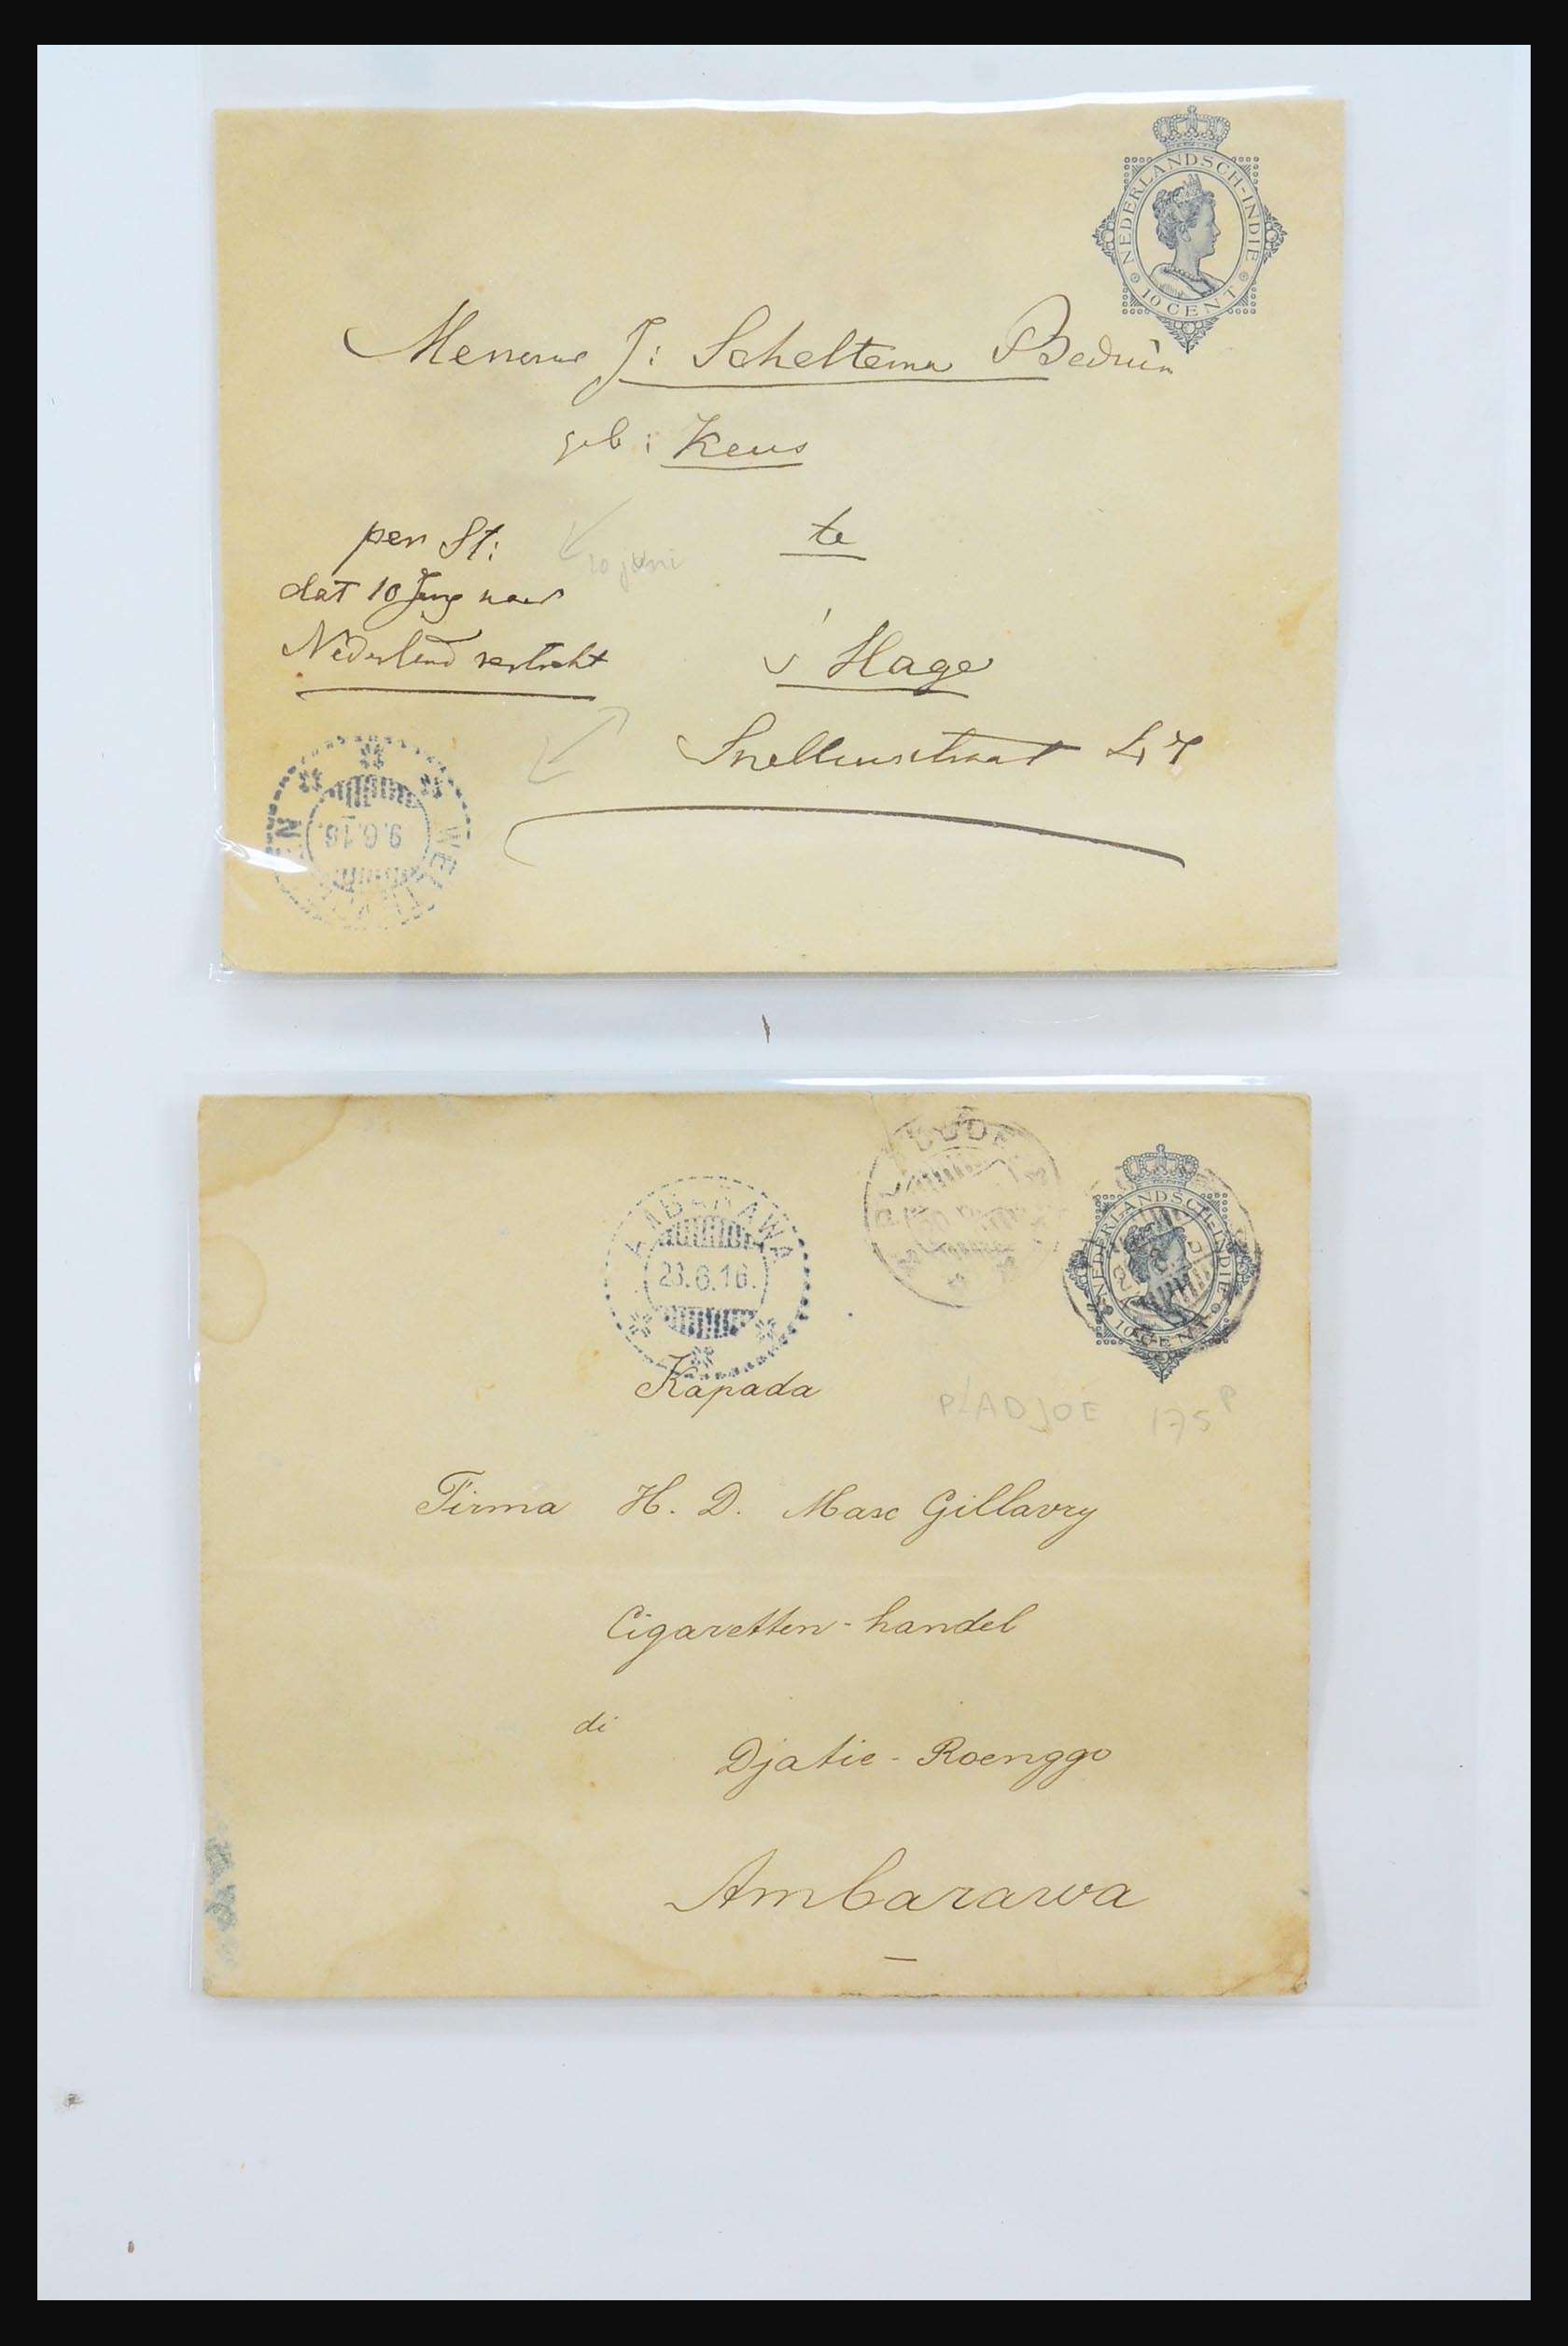 NEDERLANDSCH-INDIE
10 CENT
Mevrouw J: Scheltema Beduin
geb: Keus
per St:
10 juni
te
dat 10 Juny naar
Nederland vertrekt
s' Hage
Snellenstraat 47
WELTEVREDEN
9.6.16.
AMBARAWA
23.6.16.
NEDERLANDSCH-INDIE
10 CENT
Kapada
PLADJOE 175 P
Firma H. D. Mac Gillavry
Cigaretten-handel
di
Djatie-Roenggo
Ambarawa